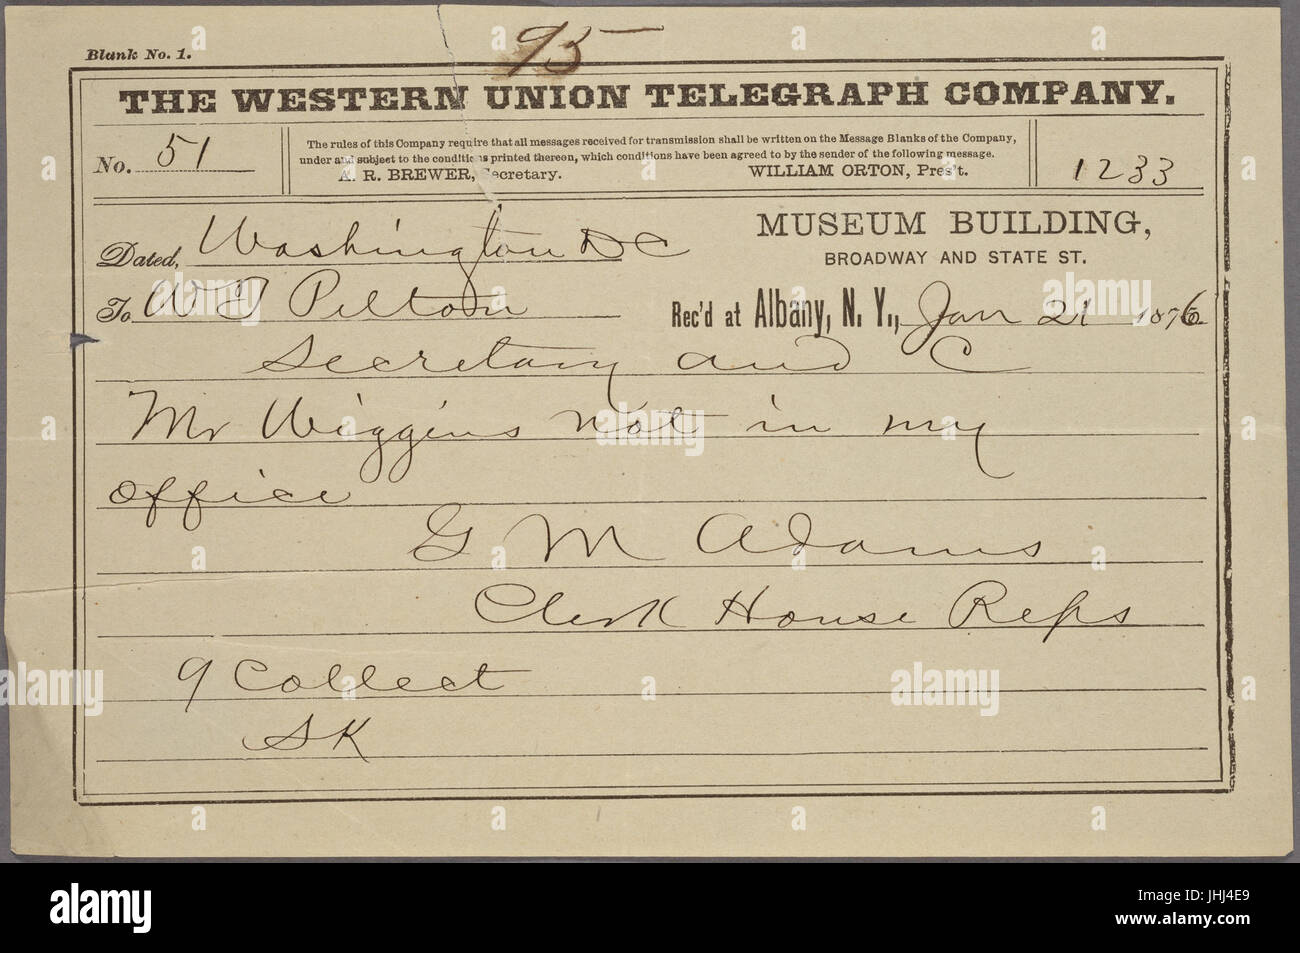 95—
Blank No. 1.
THE WESTERN UNION TELEGRAPH COMPANY.
No. 51
The rules of this Company require that all messages received for transmission shall be written on the Message Blanks of the Company,
under and subject to the conditions printed thereon, which conditions have been agreed to by the sender of the following message.
A. R. BREWER, Secretary. WILLIAM ORTON, Pres't.
1233
Dated, Washington DC
MUSEUM BUILDING,
BROADWAY AND STATE ST.
To W T Pelton
Rec'd at Albany, N. Y., Jan 21 1876
Secretary and C
Mr Wiggins not in my
office
G M Adams
Clerk House Reps
9 Collect
SK
alamy
alamy
a
alamy stock photo
JHJ4E9
www.alamy.com